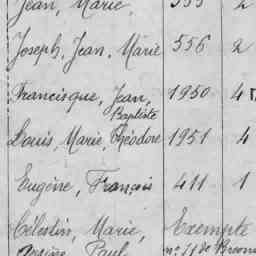 Jean, Marie, 555 2
Joseph, Jean, Marie 556 2
Francisque, Jean, 1950 4
Baptiste
Louis, Marie, Théodore 1951 4
Eugène, François 411 1
Célestin, Marie, Exempté
Paul nº 71 de